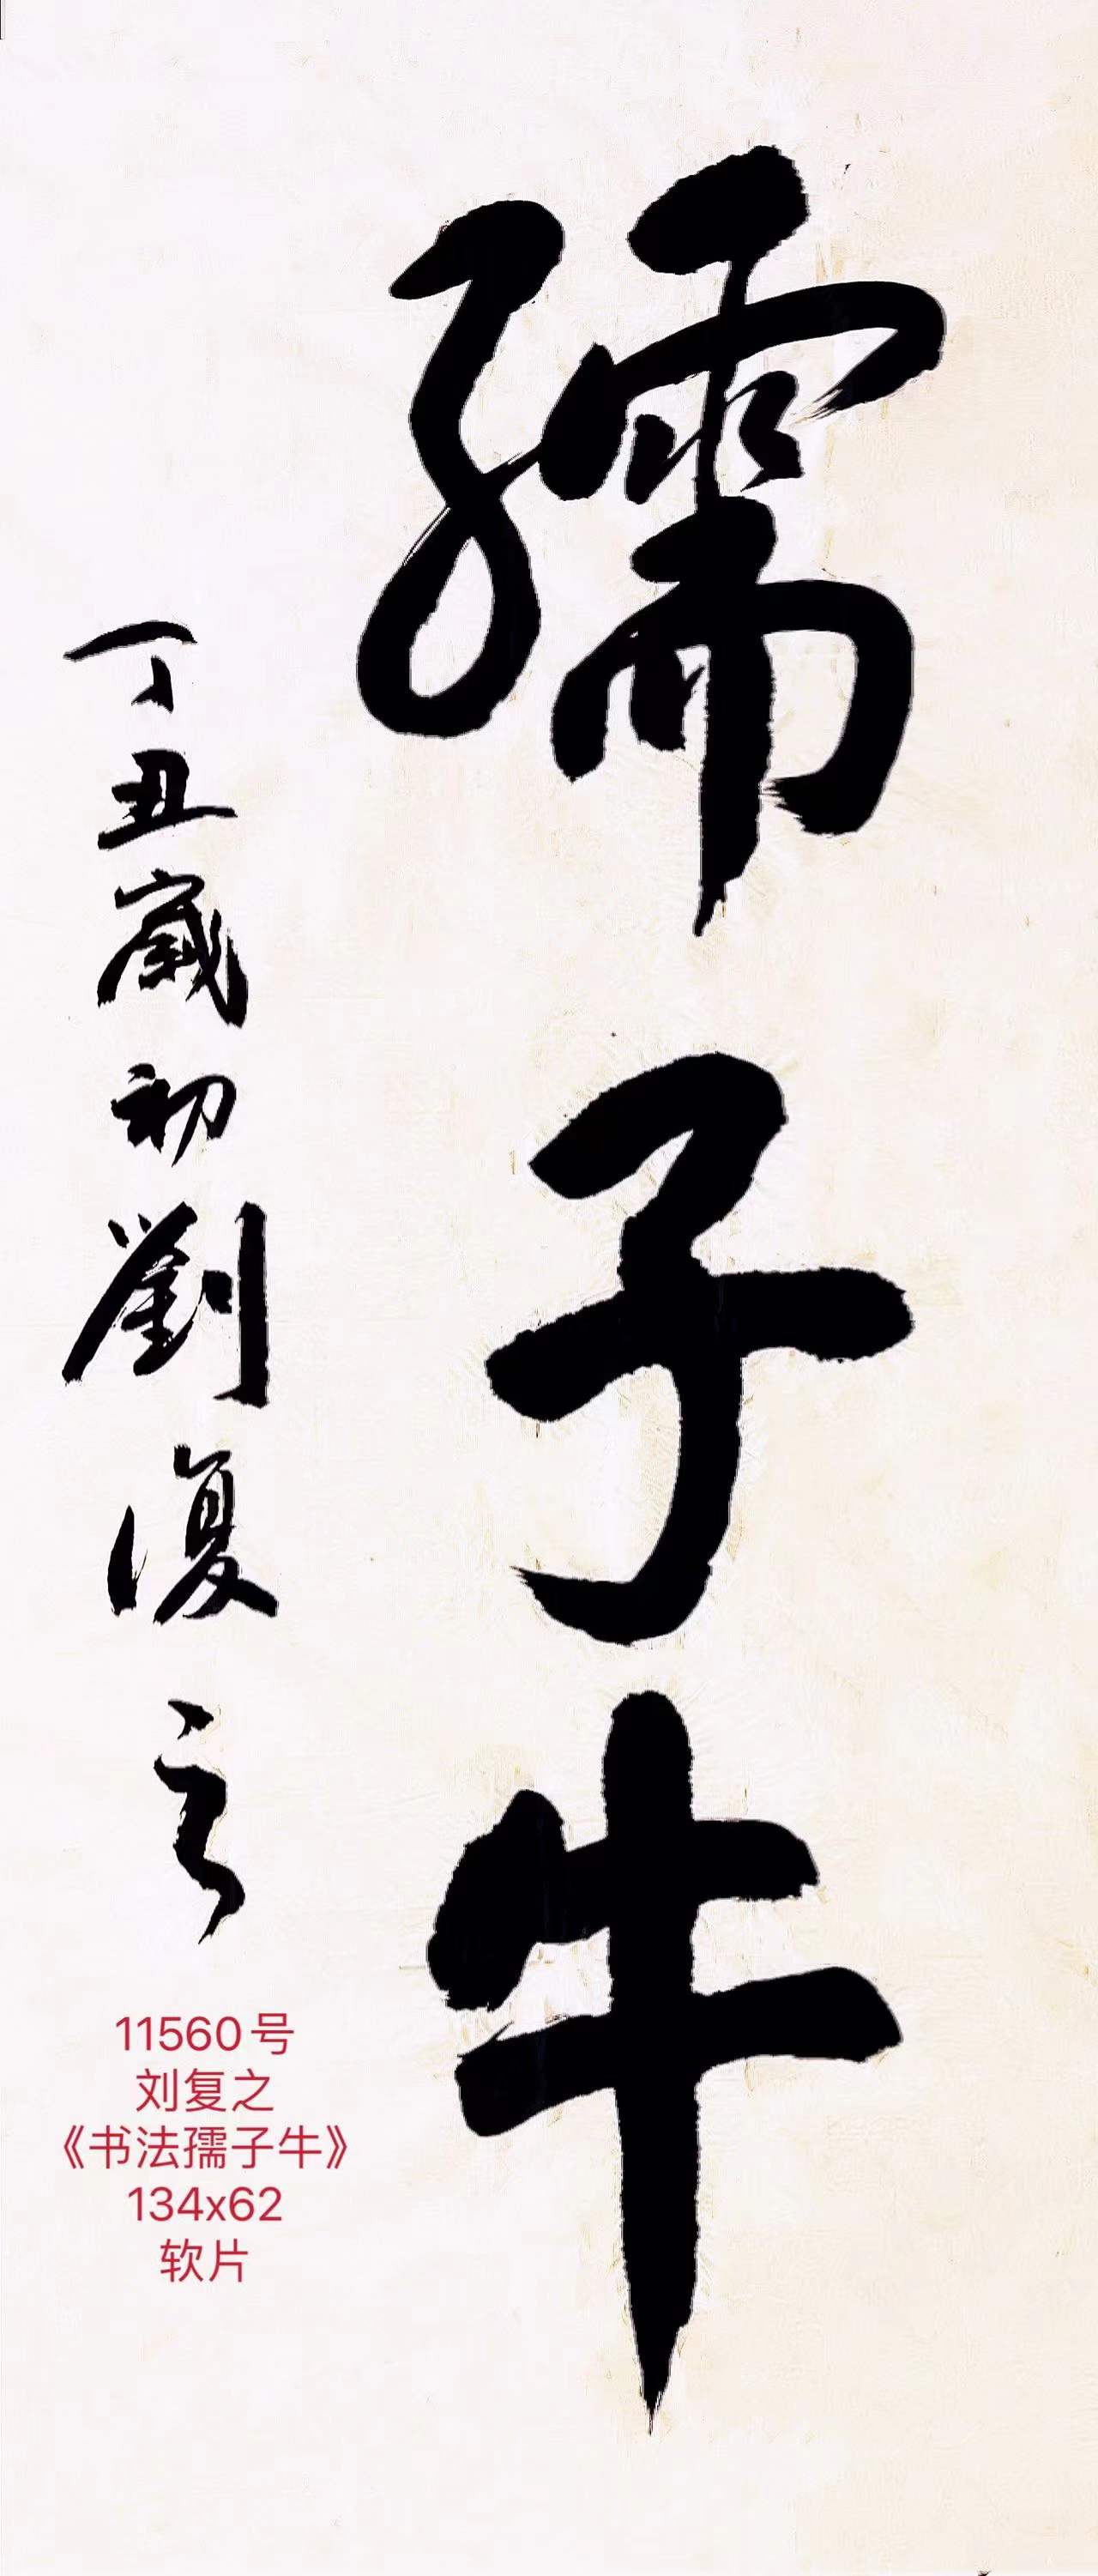 孺子牛
丁丑歲初劉復之
11560号
刘复之
《书法孺子牛》
134x62
软片